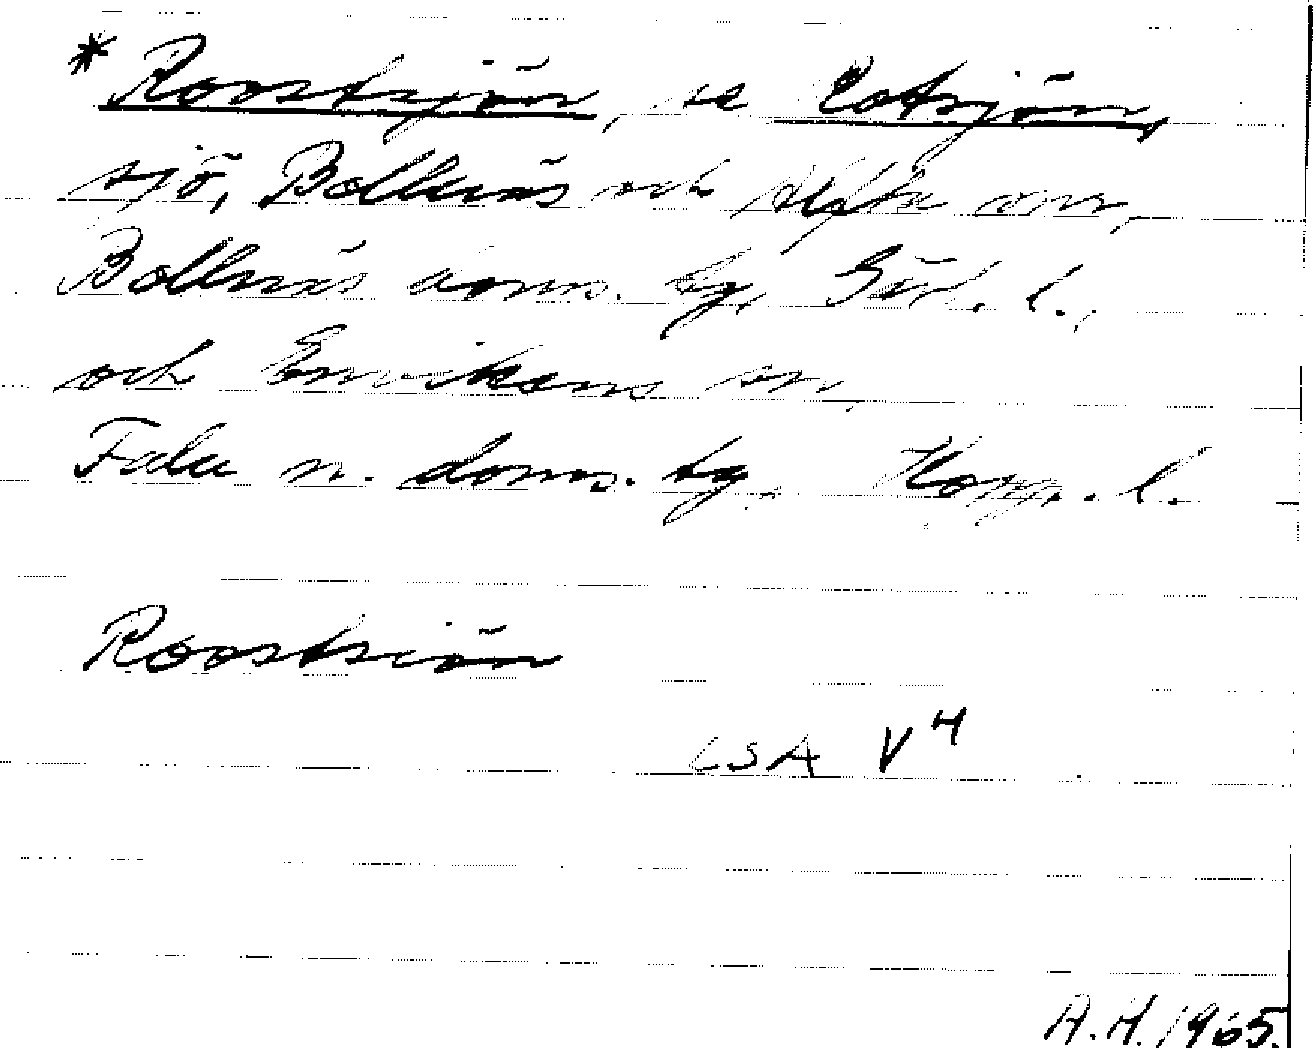 * Roostsjön, se Rotsjön,
sjö, Bollnäs och Alfta snr,
Bollnäs doms. tg, Gävl. l.,
och Envikens sn,
Falu n. doms. tg. Kopp. l.
Roostsiön
LSA V 4
A.H. 1965.